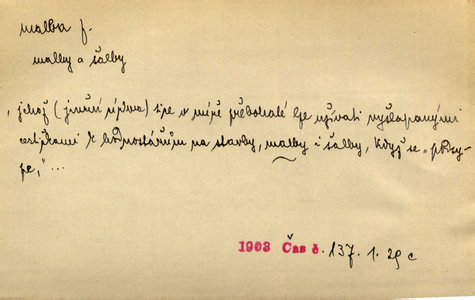 malba f.
malby a šalby
„jehož (jmění ) lze v míře přebohaté lze užívati vyšlapanými
cestičkami k hodnostářům na stavby, malby i šalby, když se „podsy-
pe,“ ...
1903 Čas č. 137. 1. 29 c